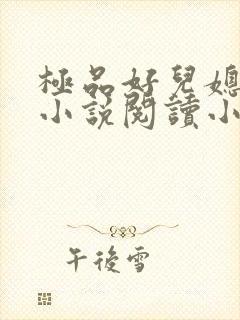 極品好兒媳
小說閱讀小
午後雪